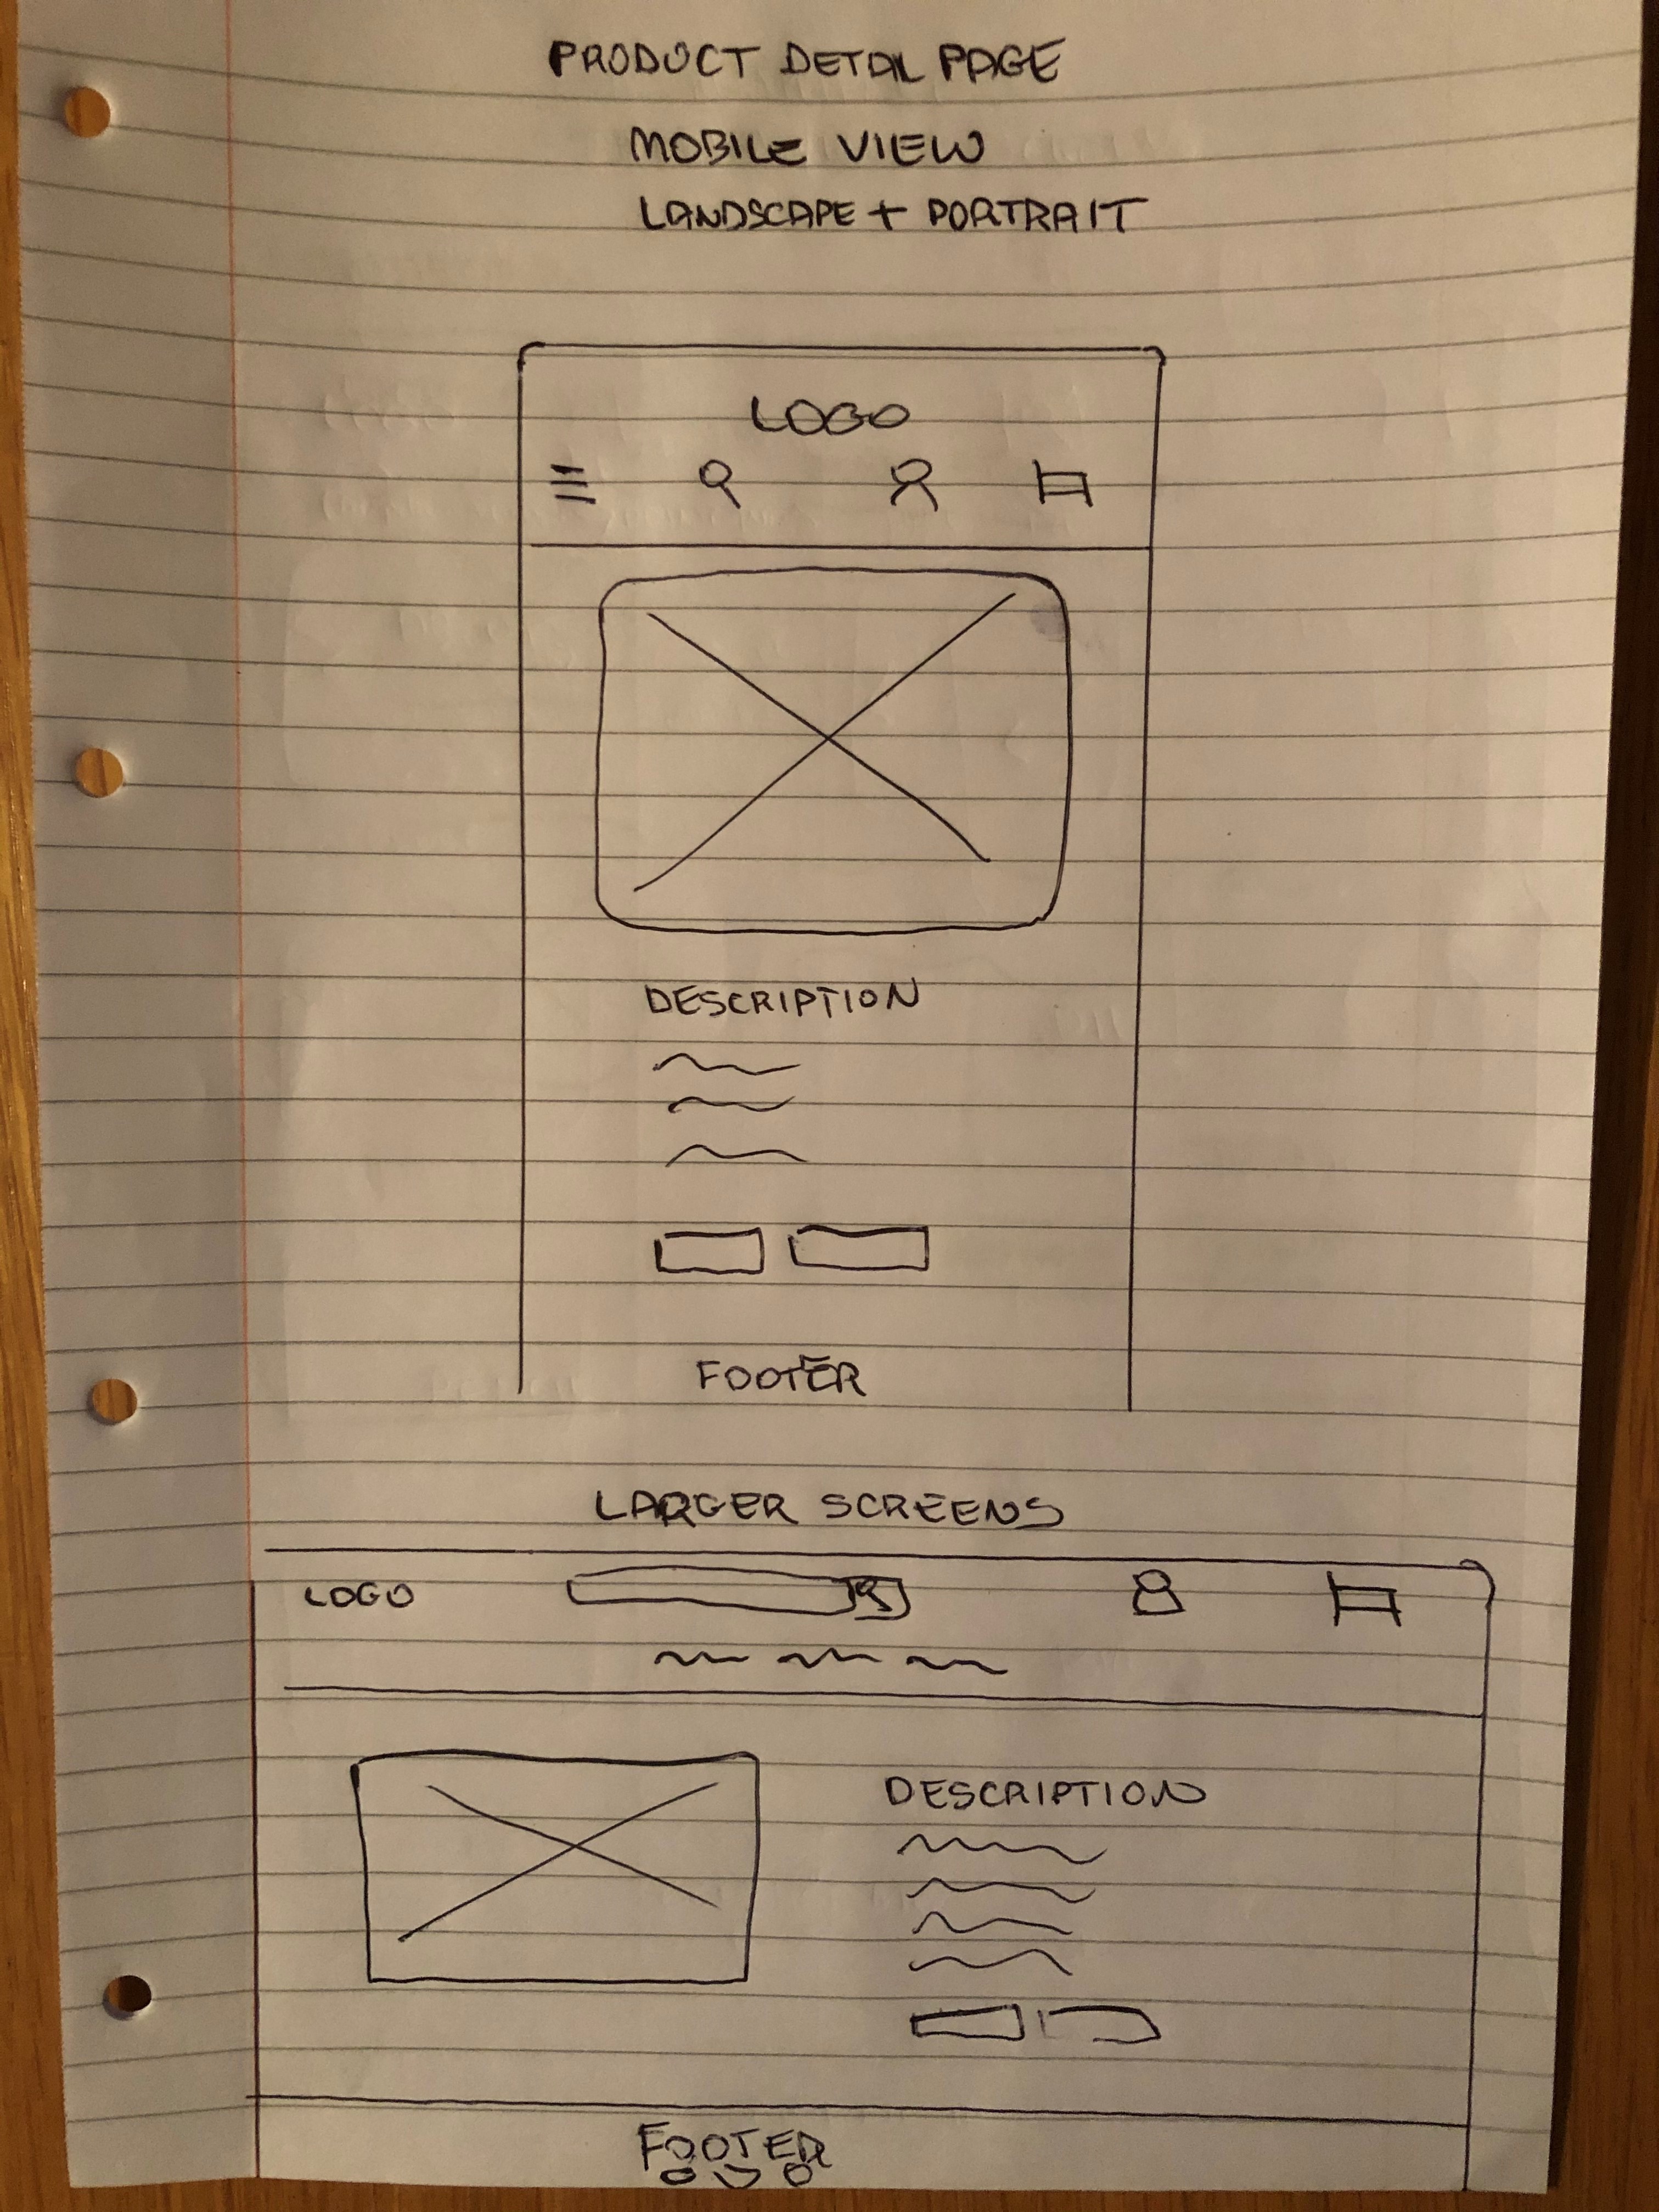 PRODUCT DETAIL PAGE
MOBILE VIEW
LANDSCAPE + PORTRAIT
LOGO
DESCRIPTION
FOOTER
LARGER SCREENS
LOGO
DESCRIPTION
FOOTER